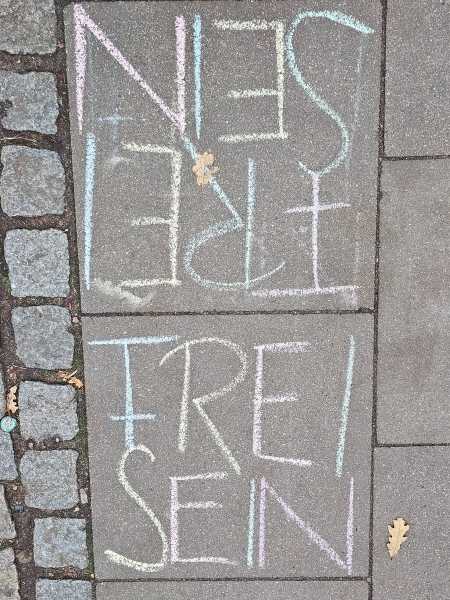 FREI
SEIN
FREI
SEIN